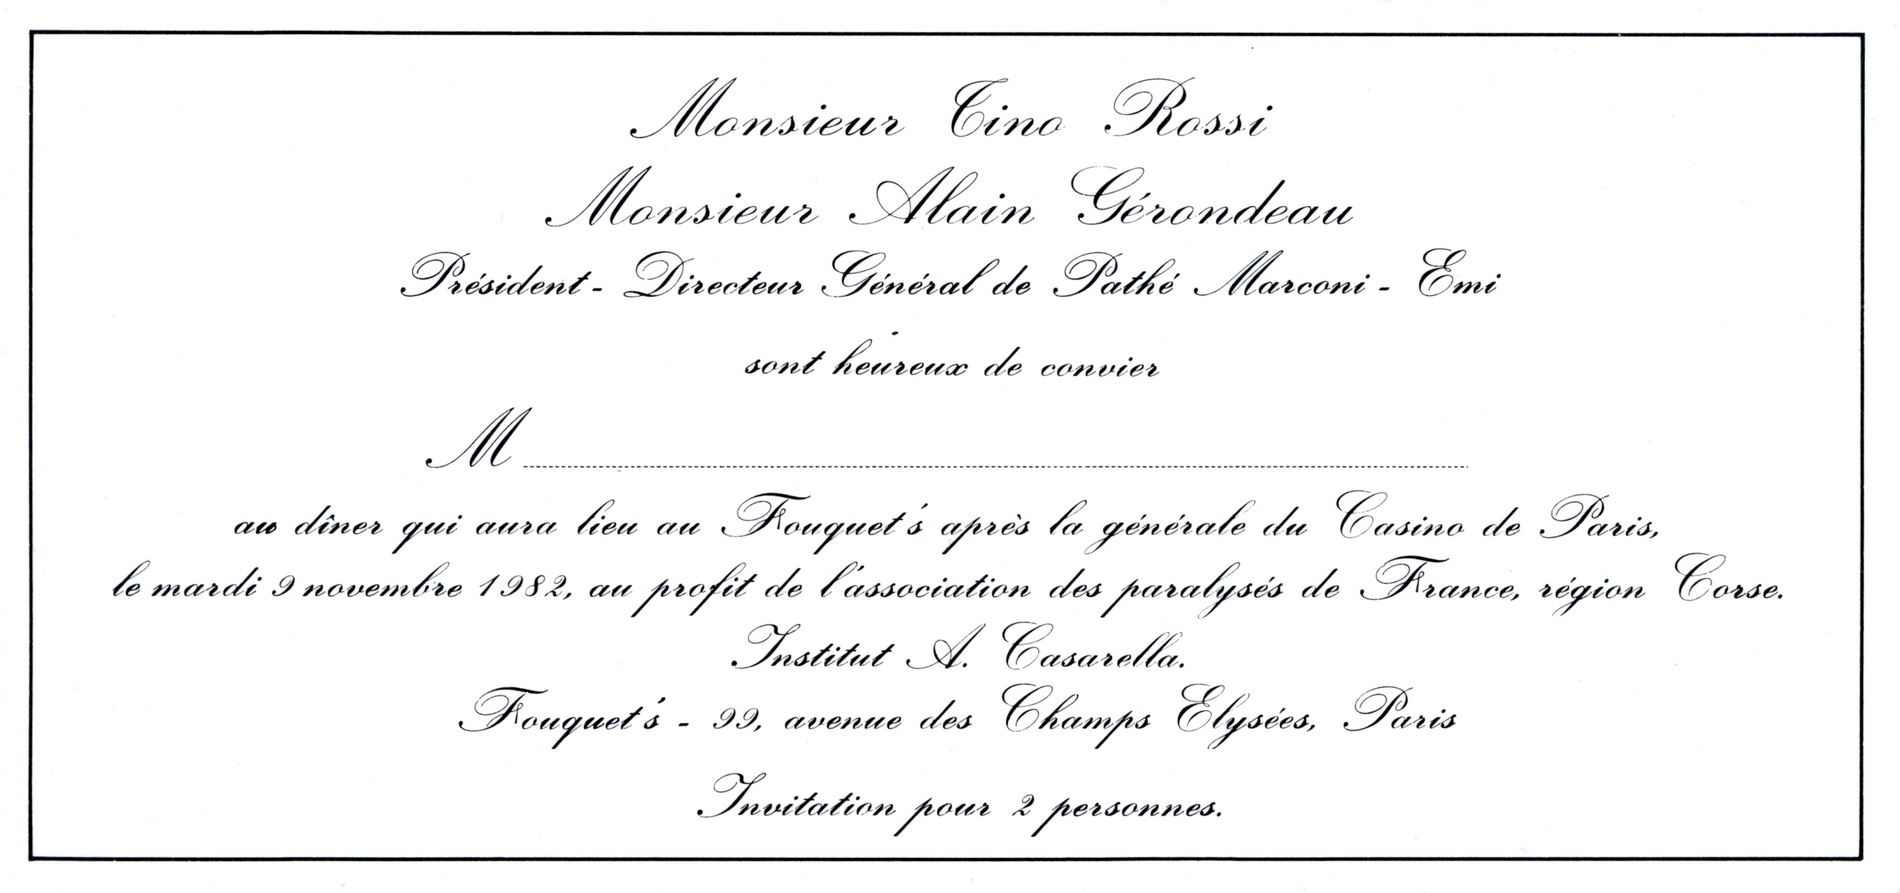 Monsieur Tino Rossi
Monsieur Alain Gérondeau
Président - Directeur Général de Pathé Marconi - Emi
sont heureux de convier
M
au dîner qui aura lieu au Fouquet's après la générale du Casino de Paris,
le mardi 9 novembre 1982, au profit de l'association des paralysés de France, région Corse.
Institut A. Casarella.
Fouquet's - 99, avenue des Champs Elysées, Paris
Invitation pour 2 personnes.